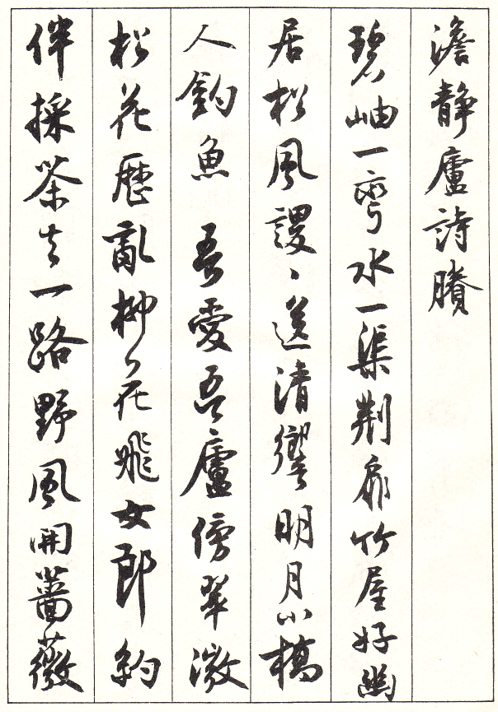 澹靜廬詩賸
碧岫一彎水一渠荊扉竹屋好幽
居松風謖〻送清響明月小橋
人釣魚 吾愛吾廬傍翠微
松花歷亂柳花飛女郎約
伴採茶去一路野風開薔薇